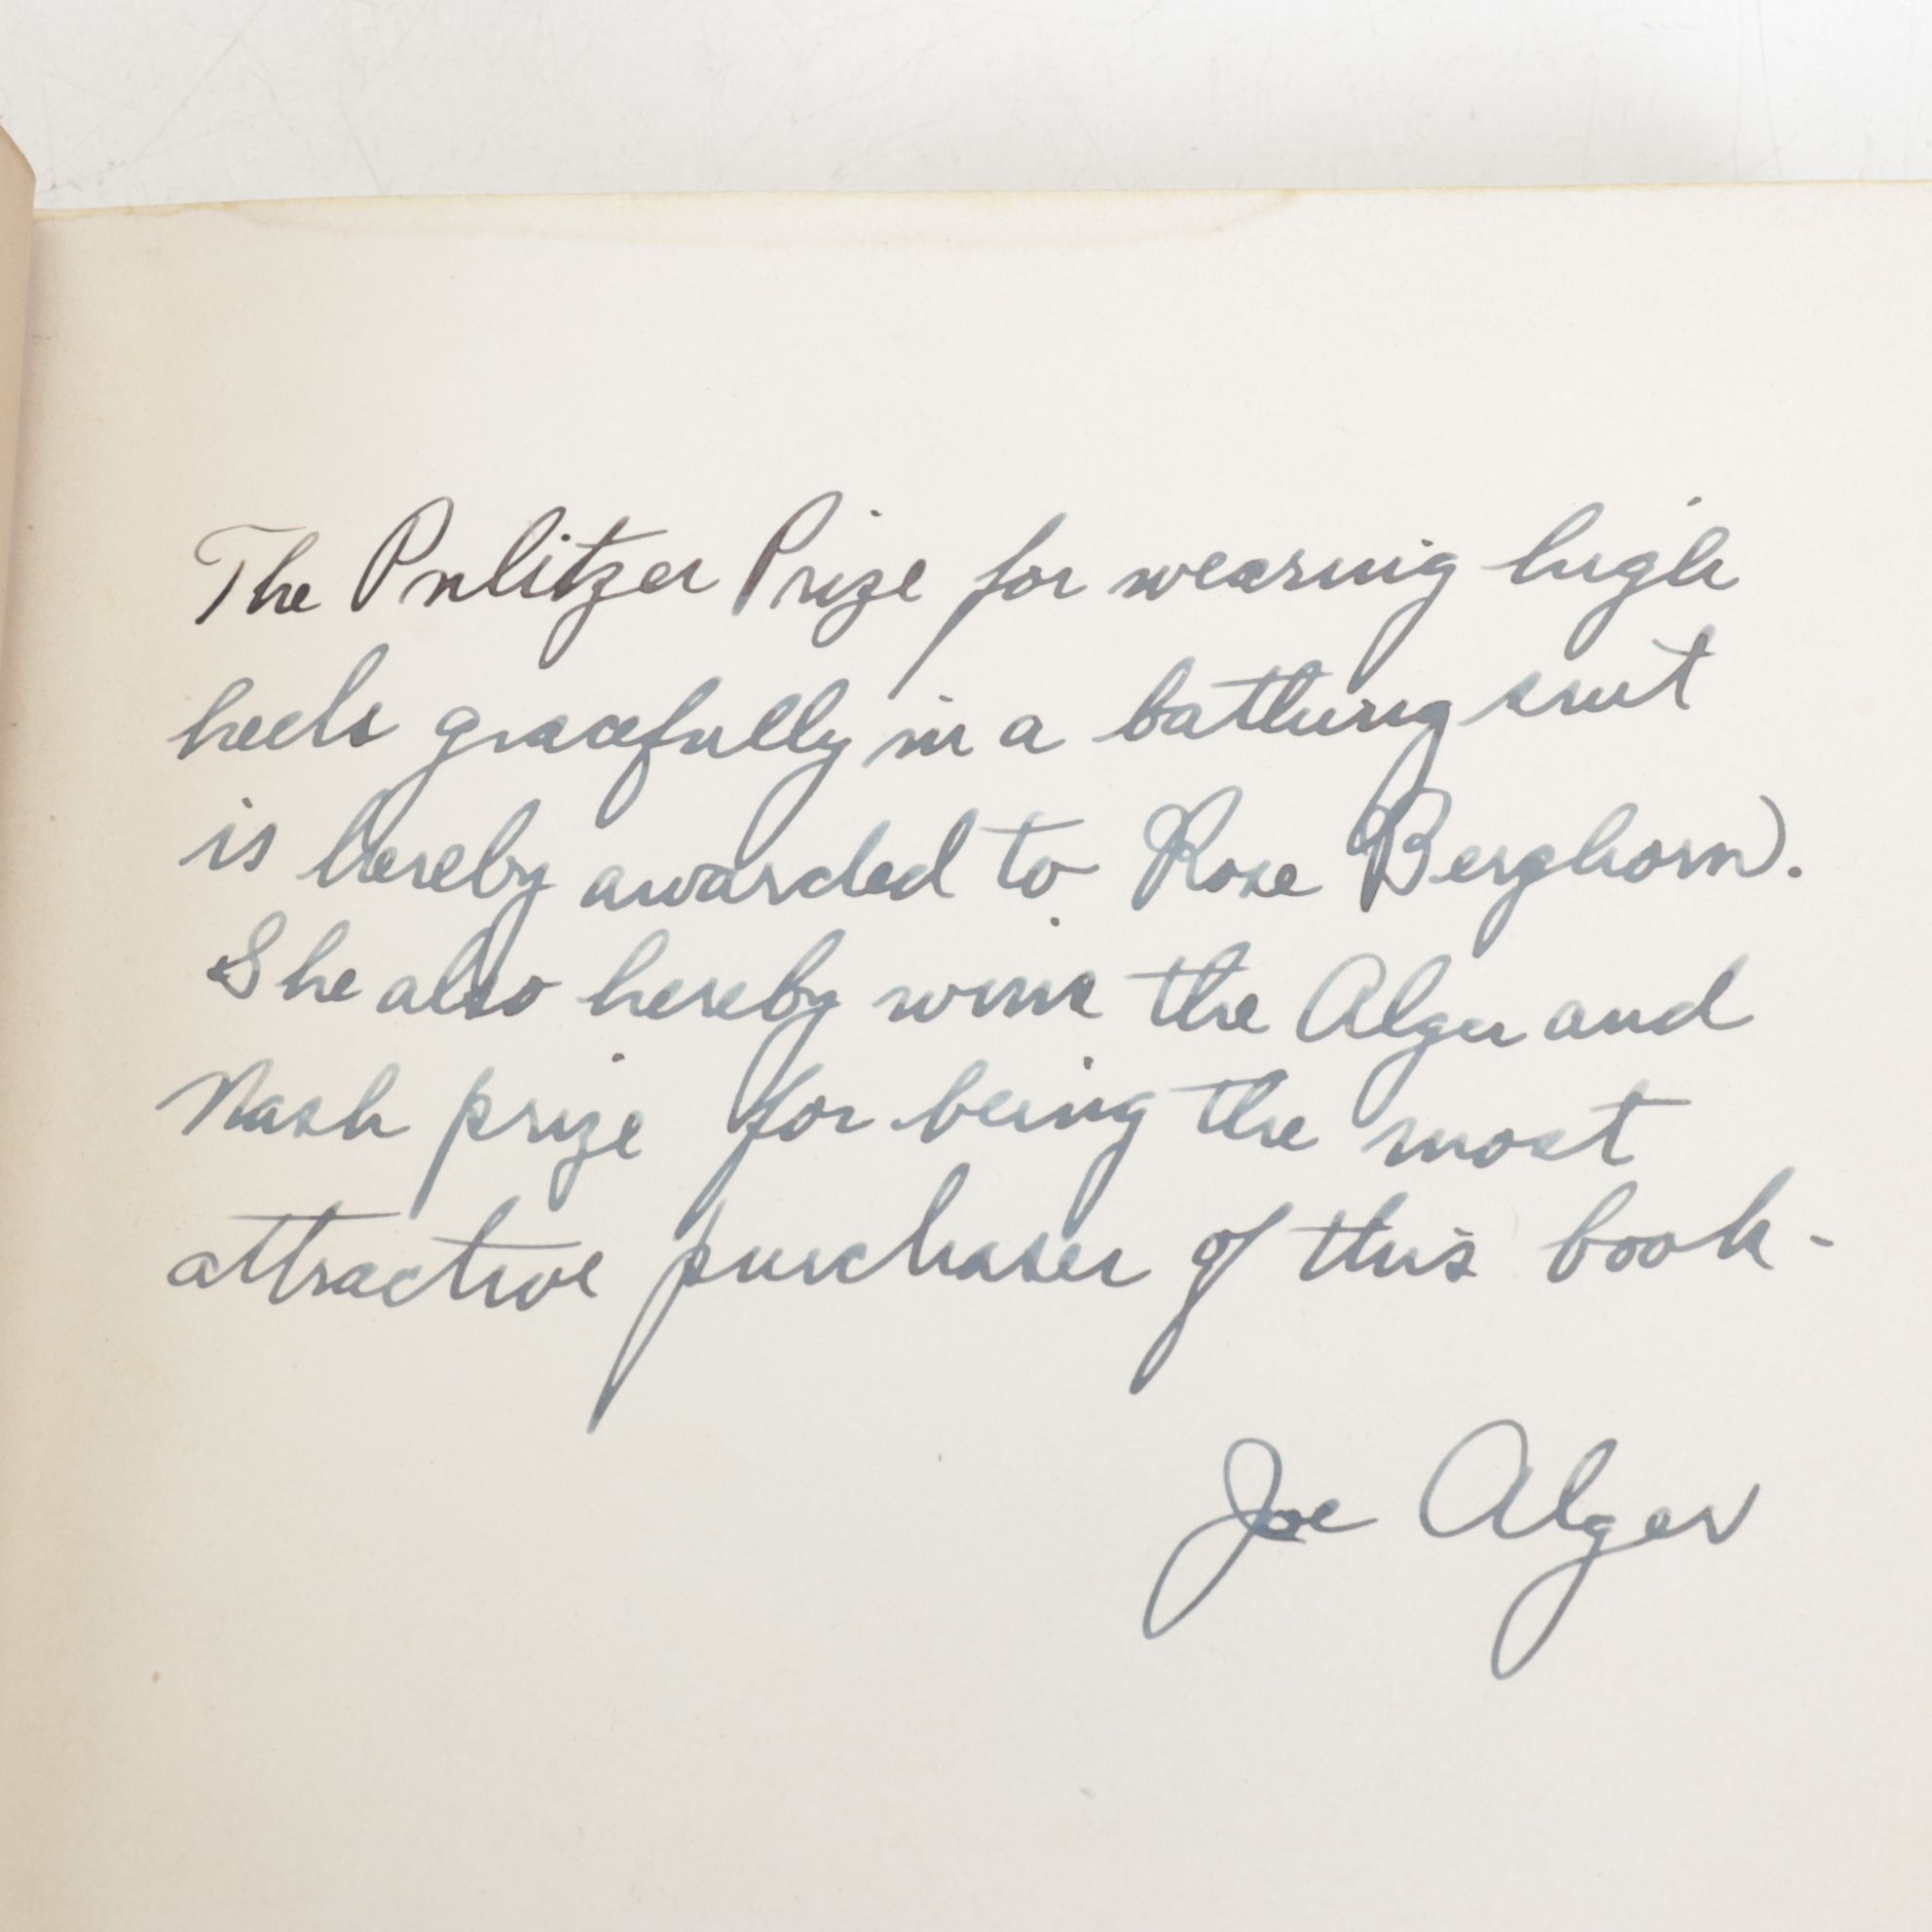 The Pulitzer Prize for wearing high
heels gracefully in a bathing suit
is hereby awarded to Rose Berghorn.
She also hereby wins the Alger and
Nash prize for being the most
attractive purchaser of this book-
Joe Alger